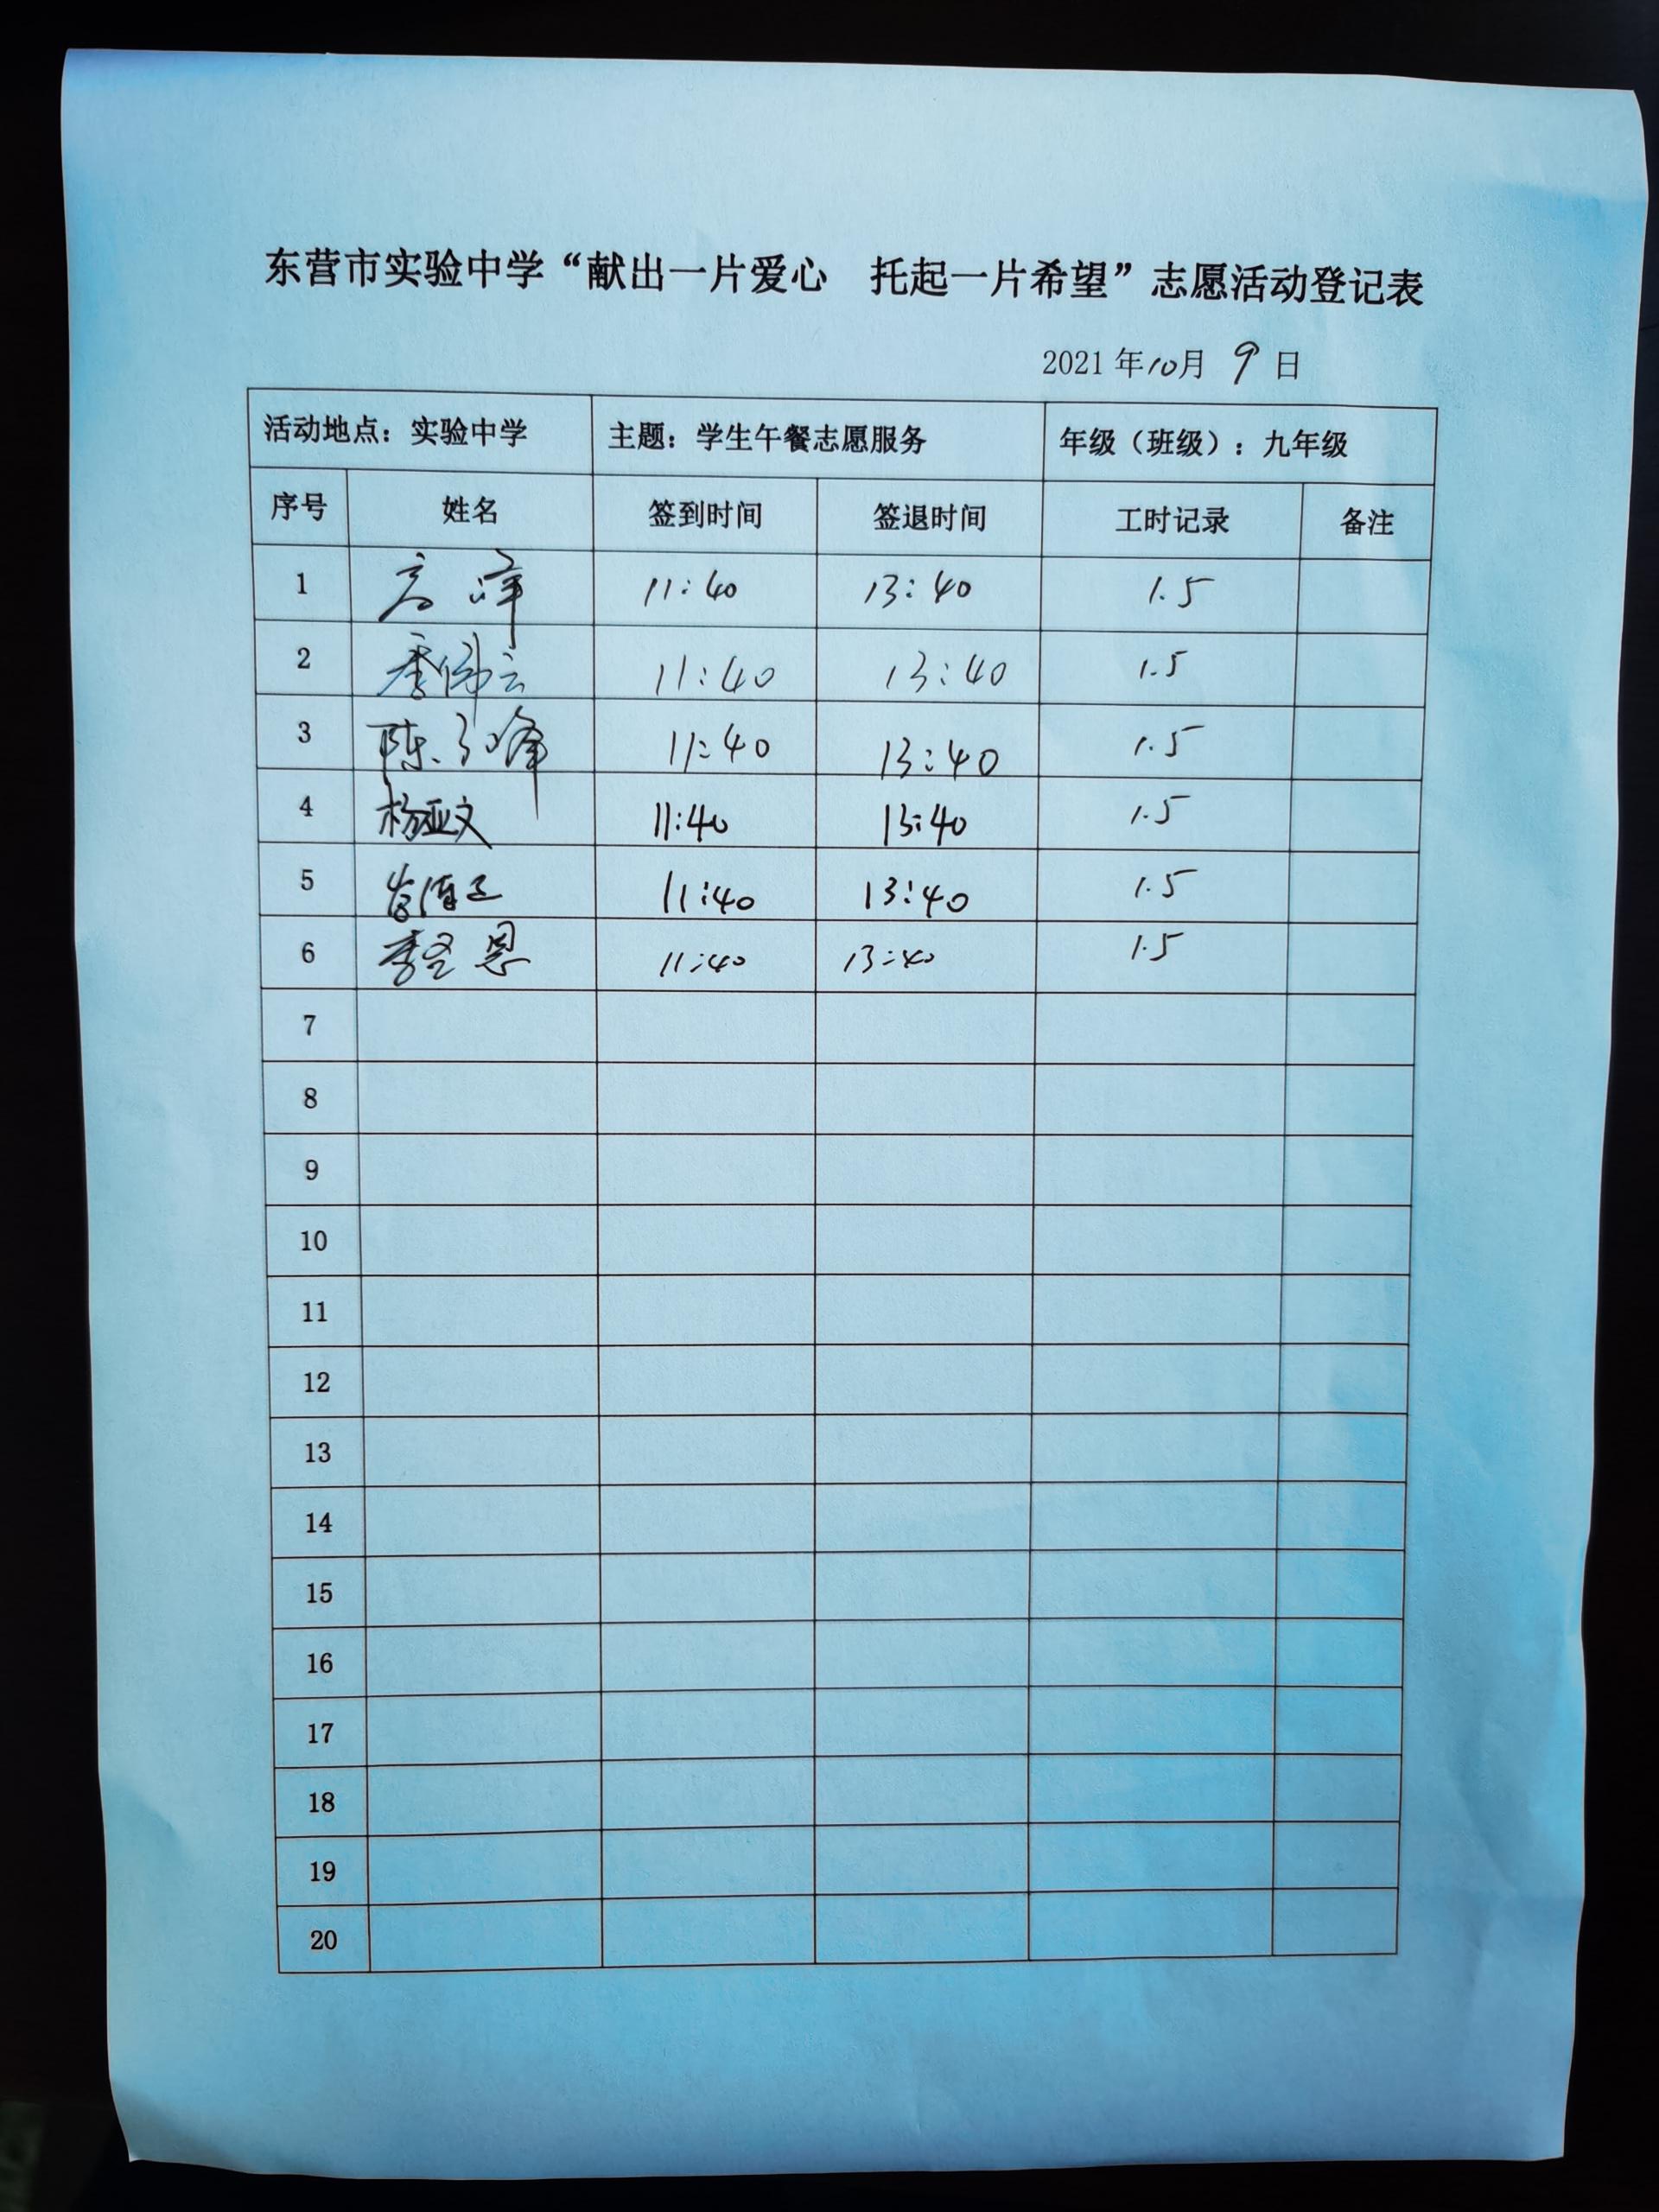 东营市实验中学“献出一片爱心 托起一片希望”志愿活动登记表
2021年10月 9 日
活动地点：实验中学 主题：学生午餐志愿服务 年级（班级）：九年级
序号 姓名 签到时间 签退时间 工时记录 备注
1 高洋 11:40 13:40 1.5
2 11:40 13:40 1.5
3 陈 峰 11:40 13:40 1.5
4 杨亚文 11:40 13:40 1.5
5 11:40 13:40 1.5
6 李 恩 11:40 13:40 1.5
7
8
9
10
11
12
13
14
15
16
17
18
19
20